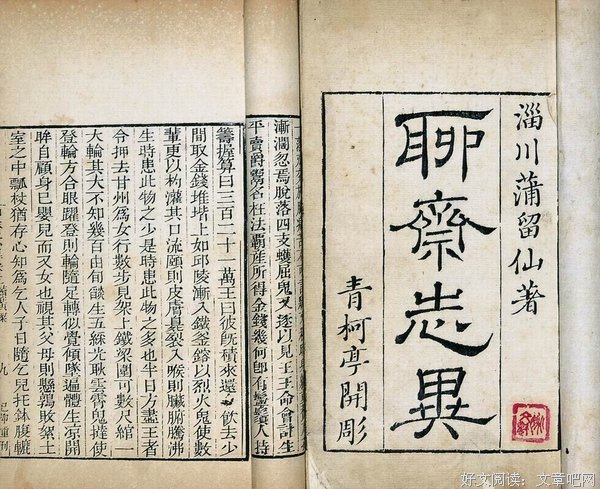 淄川蒲留仙著
聊齋志異
青柯亭開彫
漸濶忽焉脫落四支蠖屈鬼又逐以見王王命會計生
平賣爵鬻名枉法霸產所得金錢幾何卽有鬡鬚人持
籌握算曰三百二十一萬王曰彼旣積來還飲去少
間取金錢堆堦上如邱陵漸入鐵釜鎔以烈火鬼使數
輩更以杓灌其口流頤則皮膚臭裂入喉則臟腑騰沸
生時患此物之少是時患此物之多也半日方盡王者
令押去甘州爲女行數步見架上鐵梁圍可數尺綰一
火輪其大不知幾百由旬燄生五綵光耿雲霄鬼撻使
登輪方合眼躍登則輪隨足轉似覺傾墜遍體生涼開
眸自顧身已嬰兒而又女也視其父母則懸鶉敗絮土
室之中瓢杖猶存心知爲乞人子日隨乞兒托鉢腹轆
九
好文阅读：文章吧网